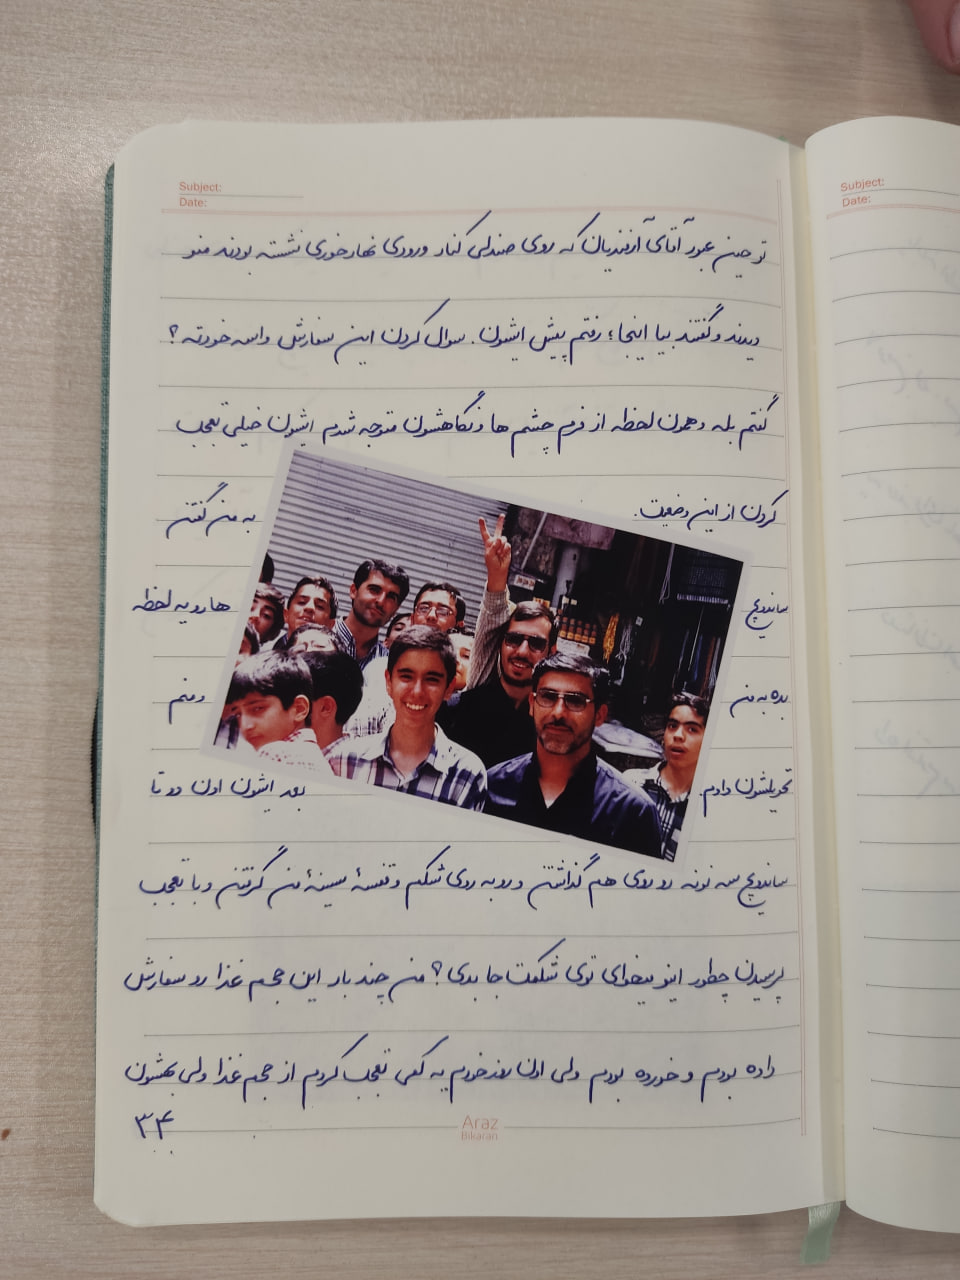 Subject:
Date:
Subject:
Date:
تو حین عبور آقای ارفندیان که روی صندلی کنار ورودی نهارخوری نشسته بودند منو
دیدند و گفتند بیا اینجا؛ رفتم پیش ایشون. سوال کردن این سفارش واسه خودته؟
گفتم بله و همون لحظه از فرم چشم ها و نگاهشون متوجه شدم ایشون خیلی تعجب
کردن از این وضعیت. به من گفتن
ساندویچ ها رو یه لحظه
بده به من و منم
تحویلشون دادم. بعد ایشون اون دو تا
ساندویچ سه نونه رو روی هم گذاشتن و رو به روی شکم و قفسهٔ سینهٔ من گرفتن و با تعجب
پرسیدن چطور اینو میخوای توی شکمت جا بدی؟ من چند بار این حجم غذا رو سفارش
داده بودم و خورده بودم ولی اون روز خودم یه کمی تعجب کردم از حجم غذا ولی بهشون
۳۴
Araz
Bikaran